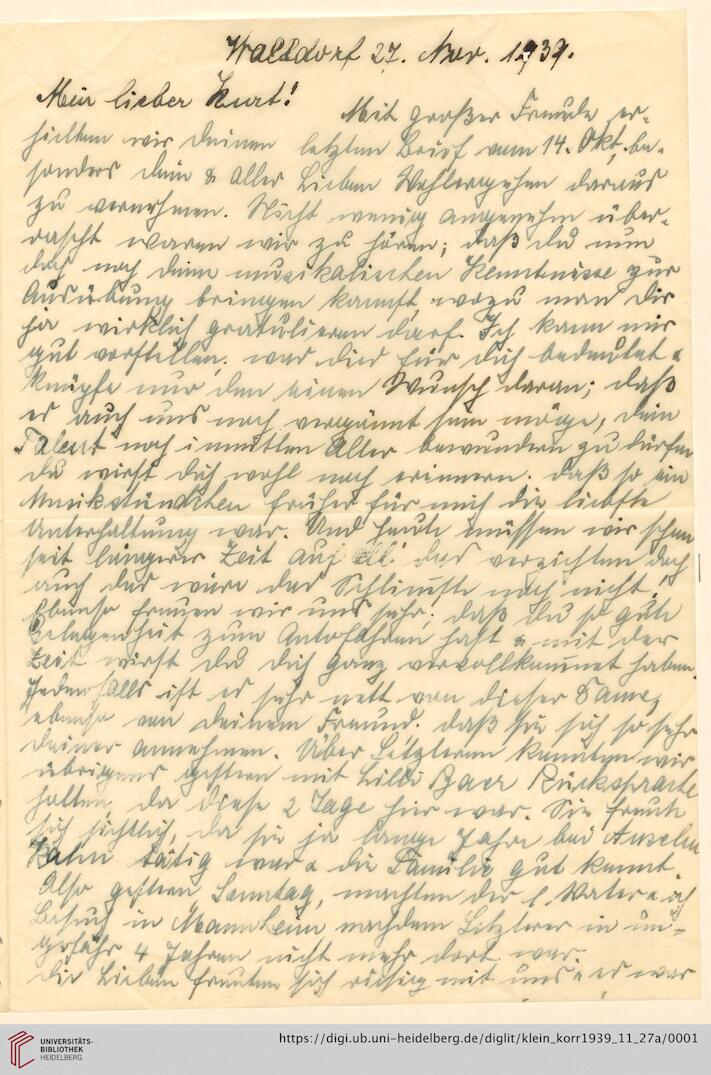 Walldorf 27. Nov. 1939.
Mein lieber Kurt!
Mit großer Freude er-
hielten wir deinen letzten Brief vom 14. Okt, be-
sonders dein & aller Lieben Wohlergehen daraus
zu vernehmen. Nicht wenig angenehm über-
rascht waren wir zu hören; daß du nun
doch noch deine musikalischen Kenntnisse zur
Ausübung bringen kannst, wozu man dir
ja wirklich gratulieren darf. Ich kann mir
gut vorstellen, was dies für dich bedeutet &
knüpfe nur den einen Wunsch daran; daß
es auch uns noch vergönnt sein möge, dein
Talent noch inmitten Aller bewundern zu dürfen
du wirst dich wohl noch erinnern. daß so ein
Musikstündchen früher für mich die liebste
Unterhaltung war. Und heute müssen wir schon
seit längerer Zeit auf all das verzichten doch
auch das wäre das Schlimmste noch nicht.
Ebenso freuen wir uns sehr; daß du so gute
Gelegenheit zum Autofahren hast & mit der
Zeit wirst du dich ganz vervollkommnet haben.
Jedenfalls ist es sehr nett von dieser Dame,
ebenso von deinem Freund. daß sie sich so sehr
deiner annehmen. Über Letzteren konnten wir
übrigens gestern mit Lilli Baer Rücksprache
halten, da diese 2 Tage hier war. Sie freute
sich sichtlich, da sie ja lange Jahre bei Anselm
Kahn tätig war & die Familie gut kennt.
Also gestern Sonntag, machten der l. Vater & ich
Besuch in Mannheim nachdem Letzterer in un-
gefähr 4 Jahren nicht mehr dort war.
die Lieben freuten sich richtig mit uns & es war
UNIVERSITÄTS-
BIBLIOTHEK
HEIDELBERG
https://digi.ub.uni-heidelberg.de/diglit/klein_korr1939_11_27a/0001